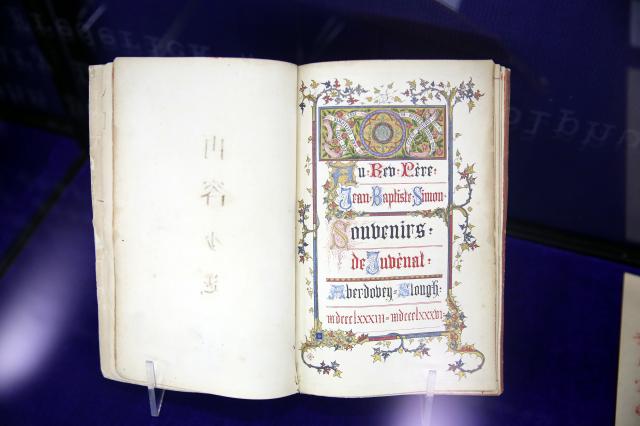 Au·Rev·Père·
Jean·Baptiste·Simon·
Souvenirs·
de Juvénal·
Aberdovey-Slough·
mdccclxxxiii-mdccclxxxvi